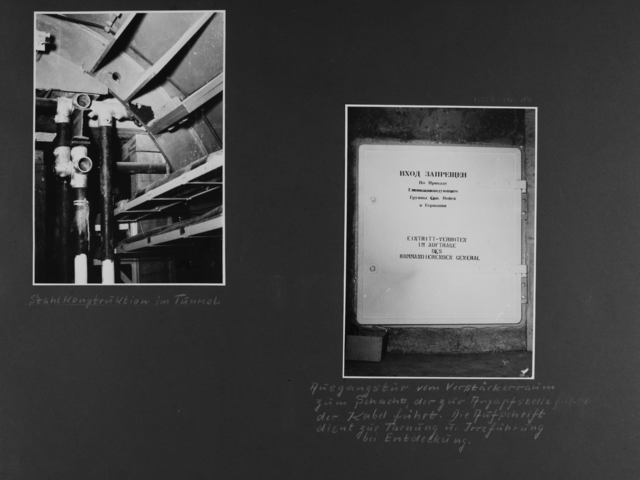 Stahlkonstruktion im Tunnel
ВХОД ЗАПРЕЩЕН
По Приказу
Главнокомандующего
Группы Сов. Войск
в Германии
EINTRITT-VERBOTEN
IM AUFTRAGE
DES
KOMMANDIERENDEN GENERAL
Ausgangstür vom Verstärkerraum
zum Schacht, der zur Anzapfstelle
der Kabel führt. Die Aufschrift
dient zur Tarnung u. Irreführung
bei Entdeckung.